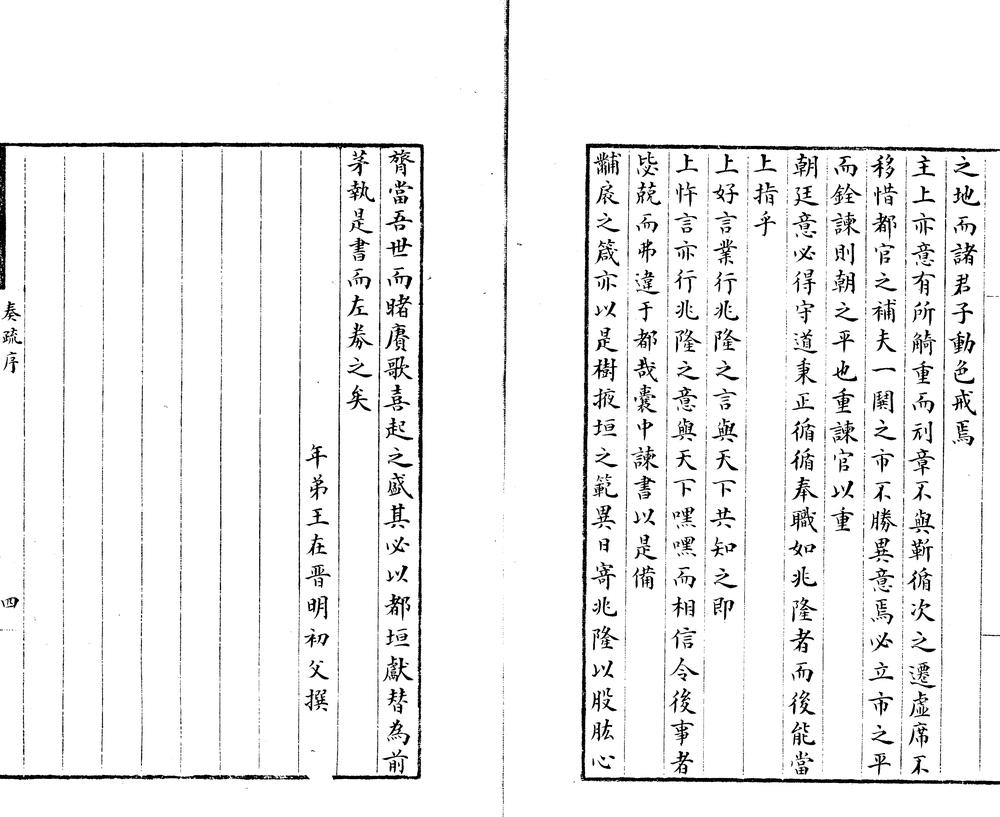 之地而諸君子動色戒焉
主上亦意有所觭重而刓章不與靳循次之遷虛席不
移惜都官之補夫一闋之市不勝異意焉必立市之平
而銓諫則朝之平也重諫官以重
朝廷意必得守道秉正循循奉職如兆隆者而後能當
上指乎
上好言業行兆隆之言與天下共知之即
上忤言亦行兆隆之意與天下嘿嘿而相信令後事者
毖兢而弗違于都哉囊中諫書以是備
黼扆之箴亦以是樹掖垣之範異日寄兆隆以股肱心
膂當吾世而睹賡歌喜起之盛其必以都垣獻替為前
茅執是書而左券之矣
年弟王在晉明初父撰
奏疏序
四